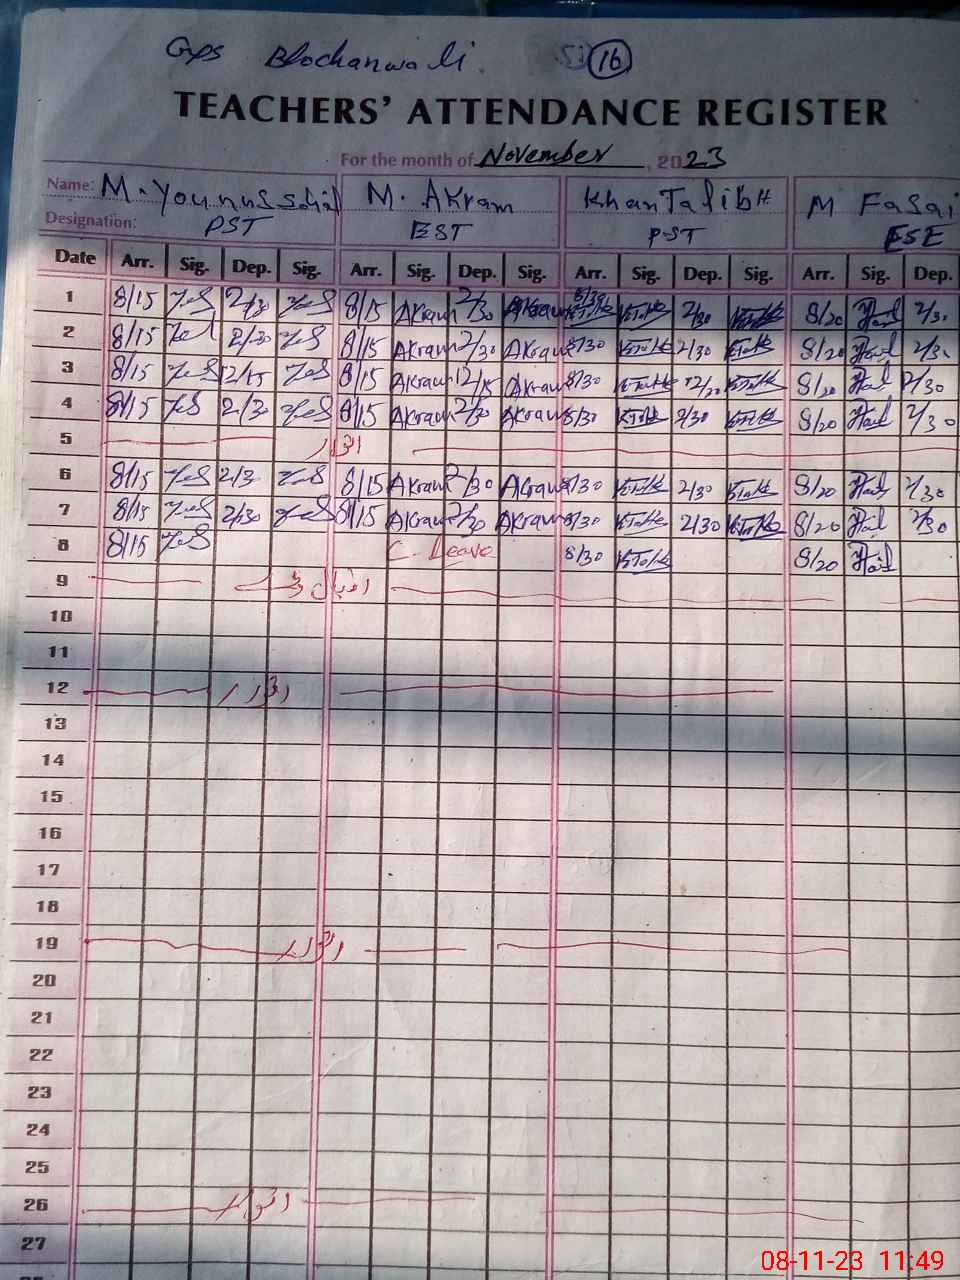 Gps Blochanwali 16
TEACHERS' ATTENDANCE REGISTER
For the month of November, 2023
Name: M. Younus M. AKram Khan Talib H M Fasai
Designation: PST EST PST ESE
Date Arr. Sig. Dep. Sig. Arr. Sig. Dep. Sig. Arr. Sig. Dep. Sig. Arr. Sig. Dep.
1 8/15 2/30 8/15 AKram 2/30 AKram 8/30 2/30 8/20 2/30
2 8/15 2/30 8/15 AKram 2/30 AKram 8/30 2/30 8/20 2/30
3 8/15 12/15 8/15 AKram 12/15 AKram 8/30 8/20
4 8/15 2/30 8/15 AKram 2/30 AKram 8/30 2/30 8/20 2/30
5 اتوار
6 8/15 2/30 8/15 AKram 2/30 AKram 8/30 2/30 8/20 2/30
7 8/15 2/30 8/15 AKram 2/30 AKram 8/30 2/30 8/20 2/30
8 8/15 C. Leave 8/30 8/20
9 اقبال ڈے
10
11
12 اتوار
13
14
15
16
17
18
19 اتوار
20
21
22
23
24
25
26 اتوار
27
08-11-23 11:49